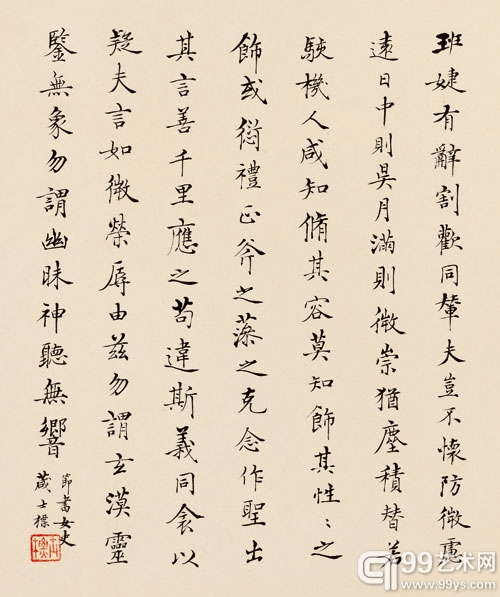 班婕有辭割歡同輦夫豈不懷防微慮
遠日中則昃月滿則微崇猶塵積替若
駭機人咸知脩其容莫知飾其性〻之
飾或愆禮正斧之藻之克念作聖出
其言善千里應之苟違斯義同衾以
疑夫言如微榮辱由茲勿謂玄漠靈
鑒無象勿謂幽昧神聽無響
節書女史
箴士標
99艺术网
www.99ys.com